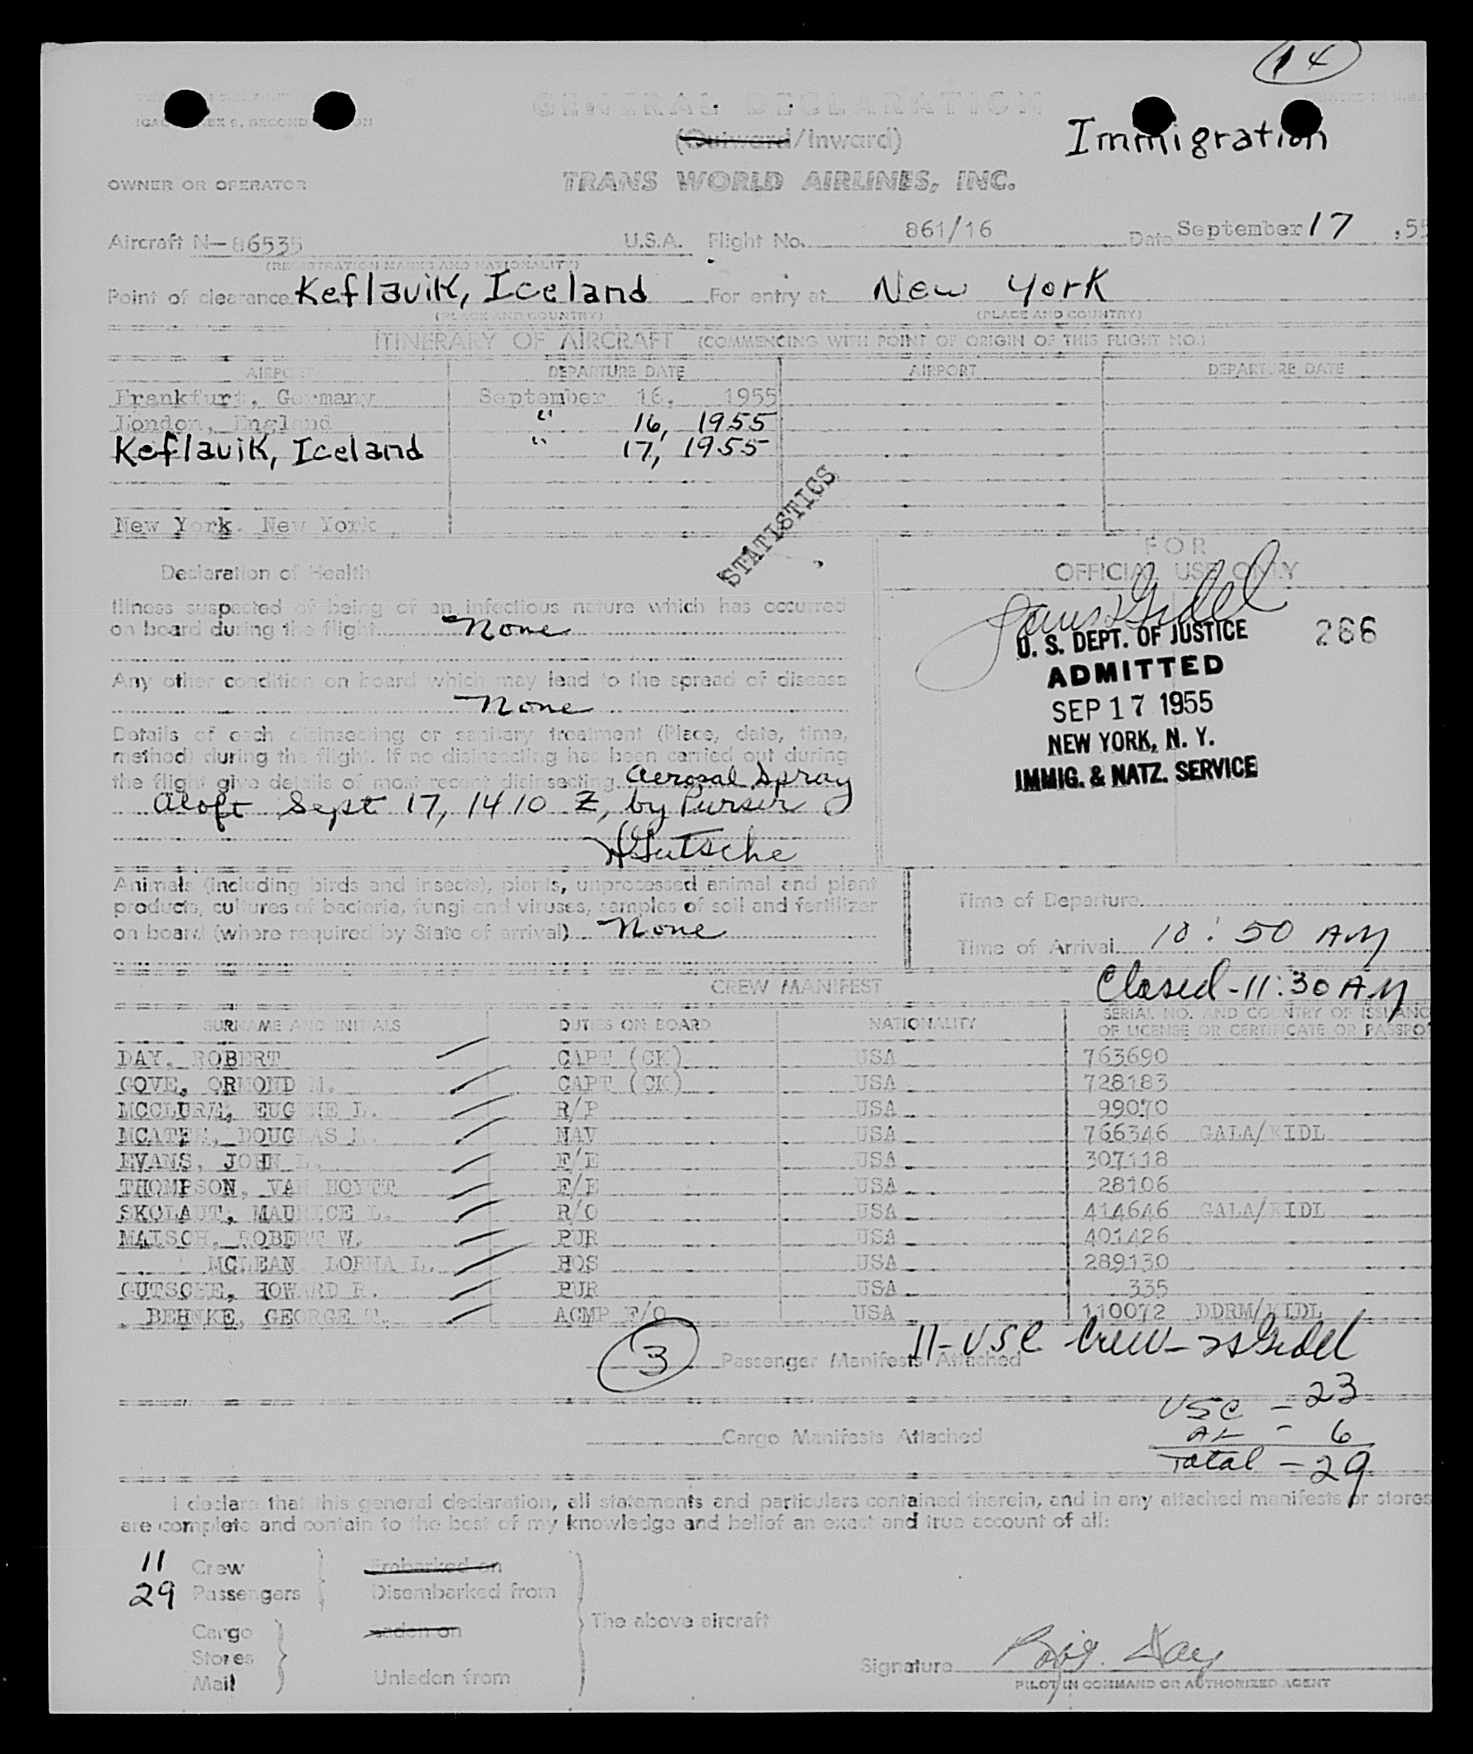 14
GENERAL DECLARATION
(Outward/Inward)
Immigration
OWNER OR OPERATOR
TRANS WORLD AIRLINES, INC.
Aircraft N-86535 U.S.A. Flight No. 861/16 Date September 17, 55
(REGISTRATION MARKS AND NATIONALITY)
Point of clearance Keflavik, Iceland For entry at New York
(PLACE AND COUNTRY) (PLACE AND COUNTRY)
ITINERARY OF AIRCRAFT (COMMENCING WITH POINT OF ORIGIN OF THIS FLIGHT NO.)
AIRPORT DEPARTURE DATE AIRPORT DEPARTURE DATE
Frankfurt, Germany September 16, 1955
London, England " 16, 1955
Keflavik, Iceland " 17, 1955
STATISTICS
New York. New York
FOR
OFFICIAL USE ONLY
Declaration of Health
Illness suspected of being of an infectious nature which has occurred
on board during the flight None
Any other condition on board which may lead to the spread of disease
None
Details of each disinsecting or sanitary treatment (Place, date, time,
method) during the flight. If no disinsecting has been carried out during
the flight give details of most recent disinsecting Aerosal Spray
aloft Sept 17, 1410 Z, by Purser
H Gutsche
U. S. DEPT. OF JUSTICE
ADMITTED
SEP 17 1955
NEW YORK, N. Y.
IMMIG. & NATZ. SERVICE
266
Animals (including birds and insects), plants, unprocessed animal and plant
products, cultures of bacteria, fungi and viruses, samples of soil and fertilizer
on board (where required by State of arrival) None
Time of Departure
Time of Arrival 10:50 AM
Closed - 11:30 AM
CREW MANIFEST
SURNAME AND INITIALS DUTIES ON BOARD NATIONALITY SERIAL NO. AND COUNTRY OF ISSUANC
OF LICENSE OR CERTIFICATE OR PASSPO
DAY, ROBERT CAPT (CK) USA 763690
GOVE, ORMOND M. CAPT (CK) USA 728183
MCCLURE, EUGENE L. R/P USA 99070
MCATEE, DOUGLAS L. NAV USA 766346 GALA/KIDL
EVANS, JOHN L. F/E USA 307118
THOMPSON, VAN HOYTT F/E USA 28106
SKOLAUT, MAURICE L. R/O USA 414646 GALA/KIDL
MAISCH, ROBERT W. PUR USA 401426
MCLEAN LORNA L. HOS USA 289130
GUTSCHE, HOWARD R. PUR USA 335
BEHNKE, GEORGE T. ACMP F/O USA 110072 DDRM/KIDL
11-USC Crew
3 Passenger Manifests Attached
USC - 23
AL - 6
Total - 29
Cargo Manifests Attached
I declare that this general declaration, all statements and particulars contained therein, and in any attached manifests or stores
are complete and contain to the best of my knowledge and belief an exact and true account of all:
11 Crew Embarked on
29 Passengers Disembarked from
The above aircraft
Cargo Laden on
Stores
Mail Unladen from
Signature Day
PILOT IN COMMAND OR AUTHORIZED AGENT